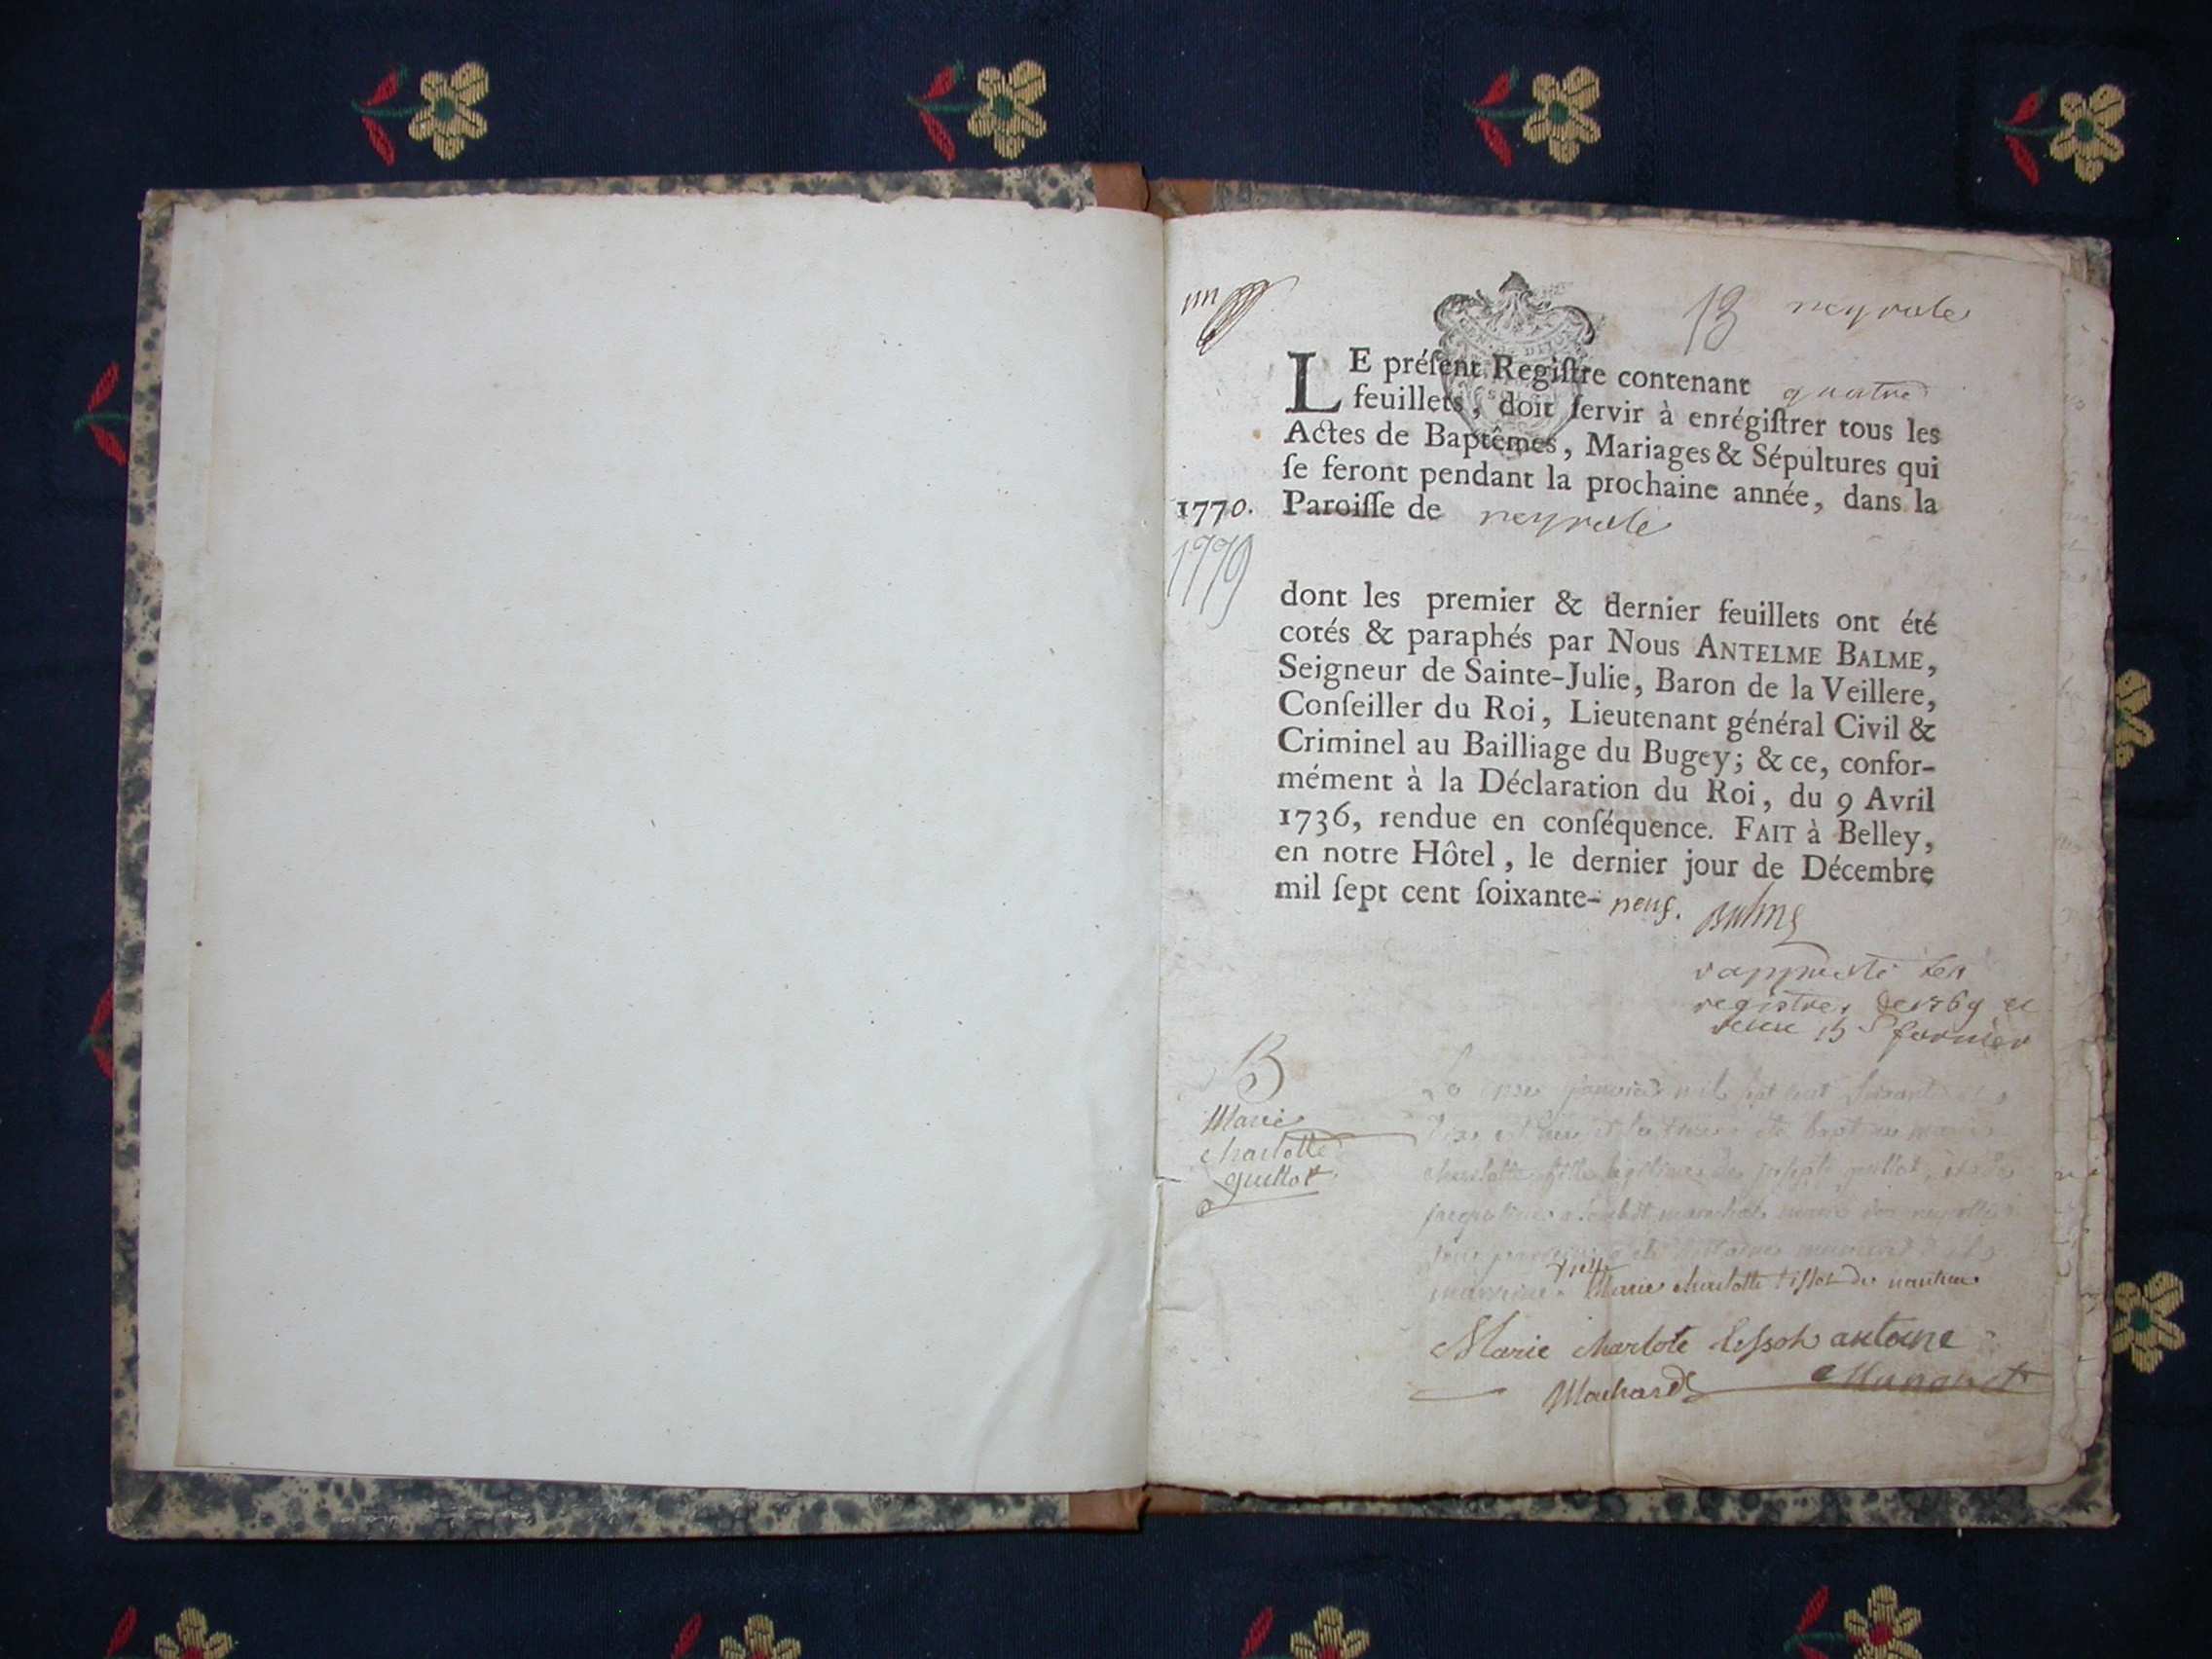 13 neyrole
LE préſent Regiſtre contenant quatre
feuillets, doit ſervir à enrégiſtrer tous les
Actes de Baptêmes, Mariages & Sépultures qui
ſe feront pendant la prochaine année, dans la
1770. Paroiſſe de neyrole
1779
dont les premier & dernier feuillets ont été
cotés & paraphés par Nous ANTELME BALME,
Seigneur de Sainte-Julie, Baron de la Veillere,
Conſeiller du Roi, Lieutenant général Civil &
Criminel au Bailliage du Bugey; & ce, confor-
mément à la Déclaration du Roi, du 9 Avril
1736, rendue en conſéquence. FAIT à Belley,
en notre Hôtel, le dernier jour de Décembre
mil ſept cent ſoixante-neuf. Balme
rapporté les
registres de 1769
B
Marie
charlotte
guillot
janvier mil sept cent soixante
charlotte fille legitime de joseph guillot
marraine Marie charlotte tissot de nantua
Marie charlote tissot antoine
Mouhard